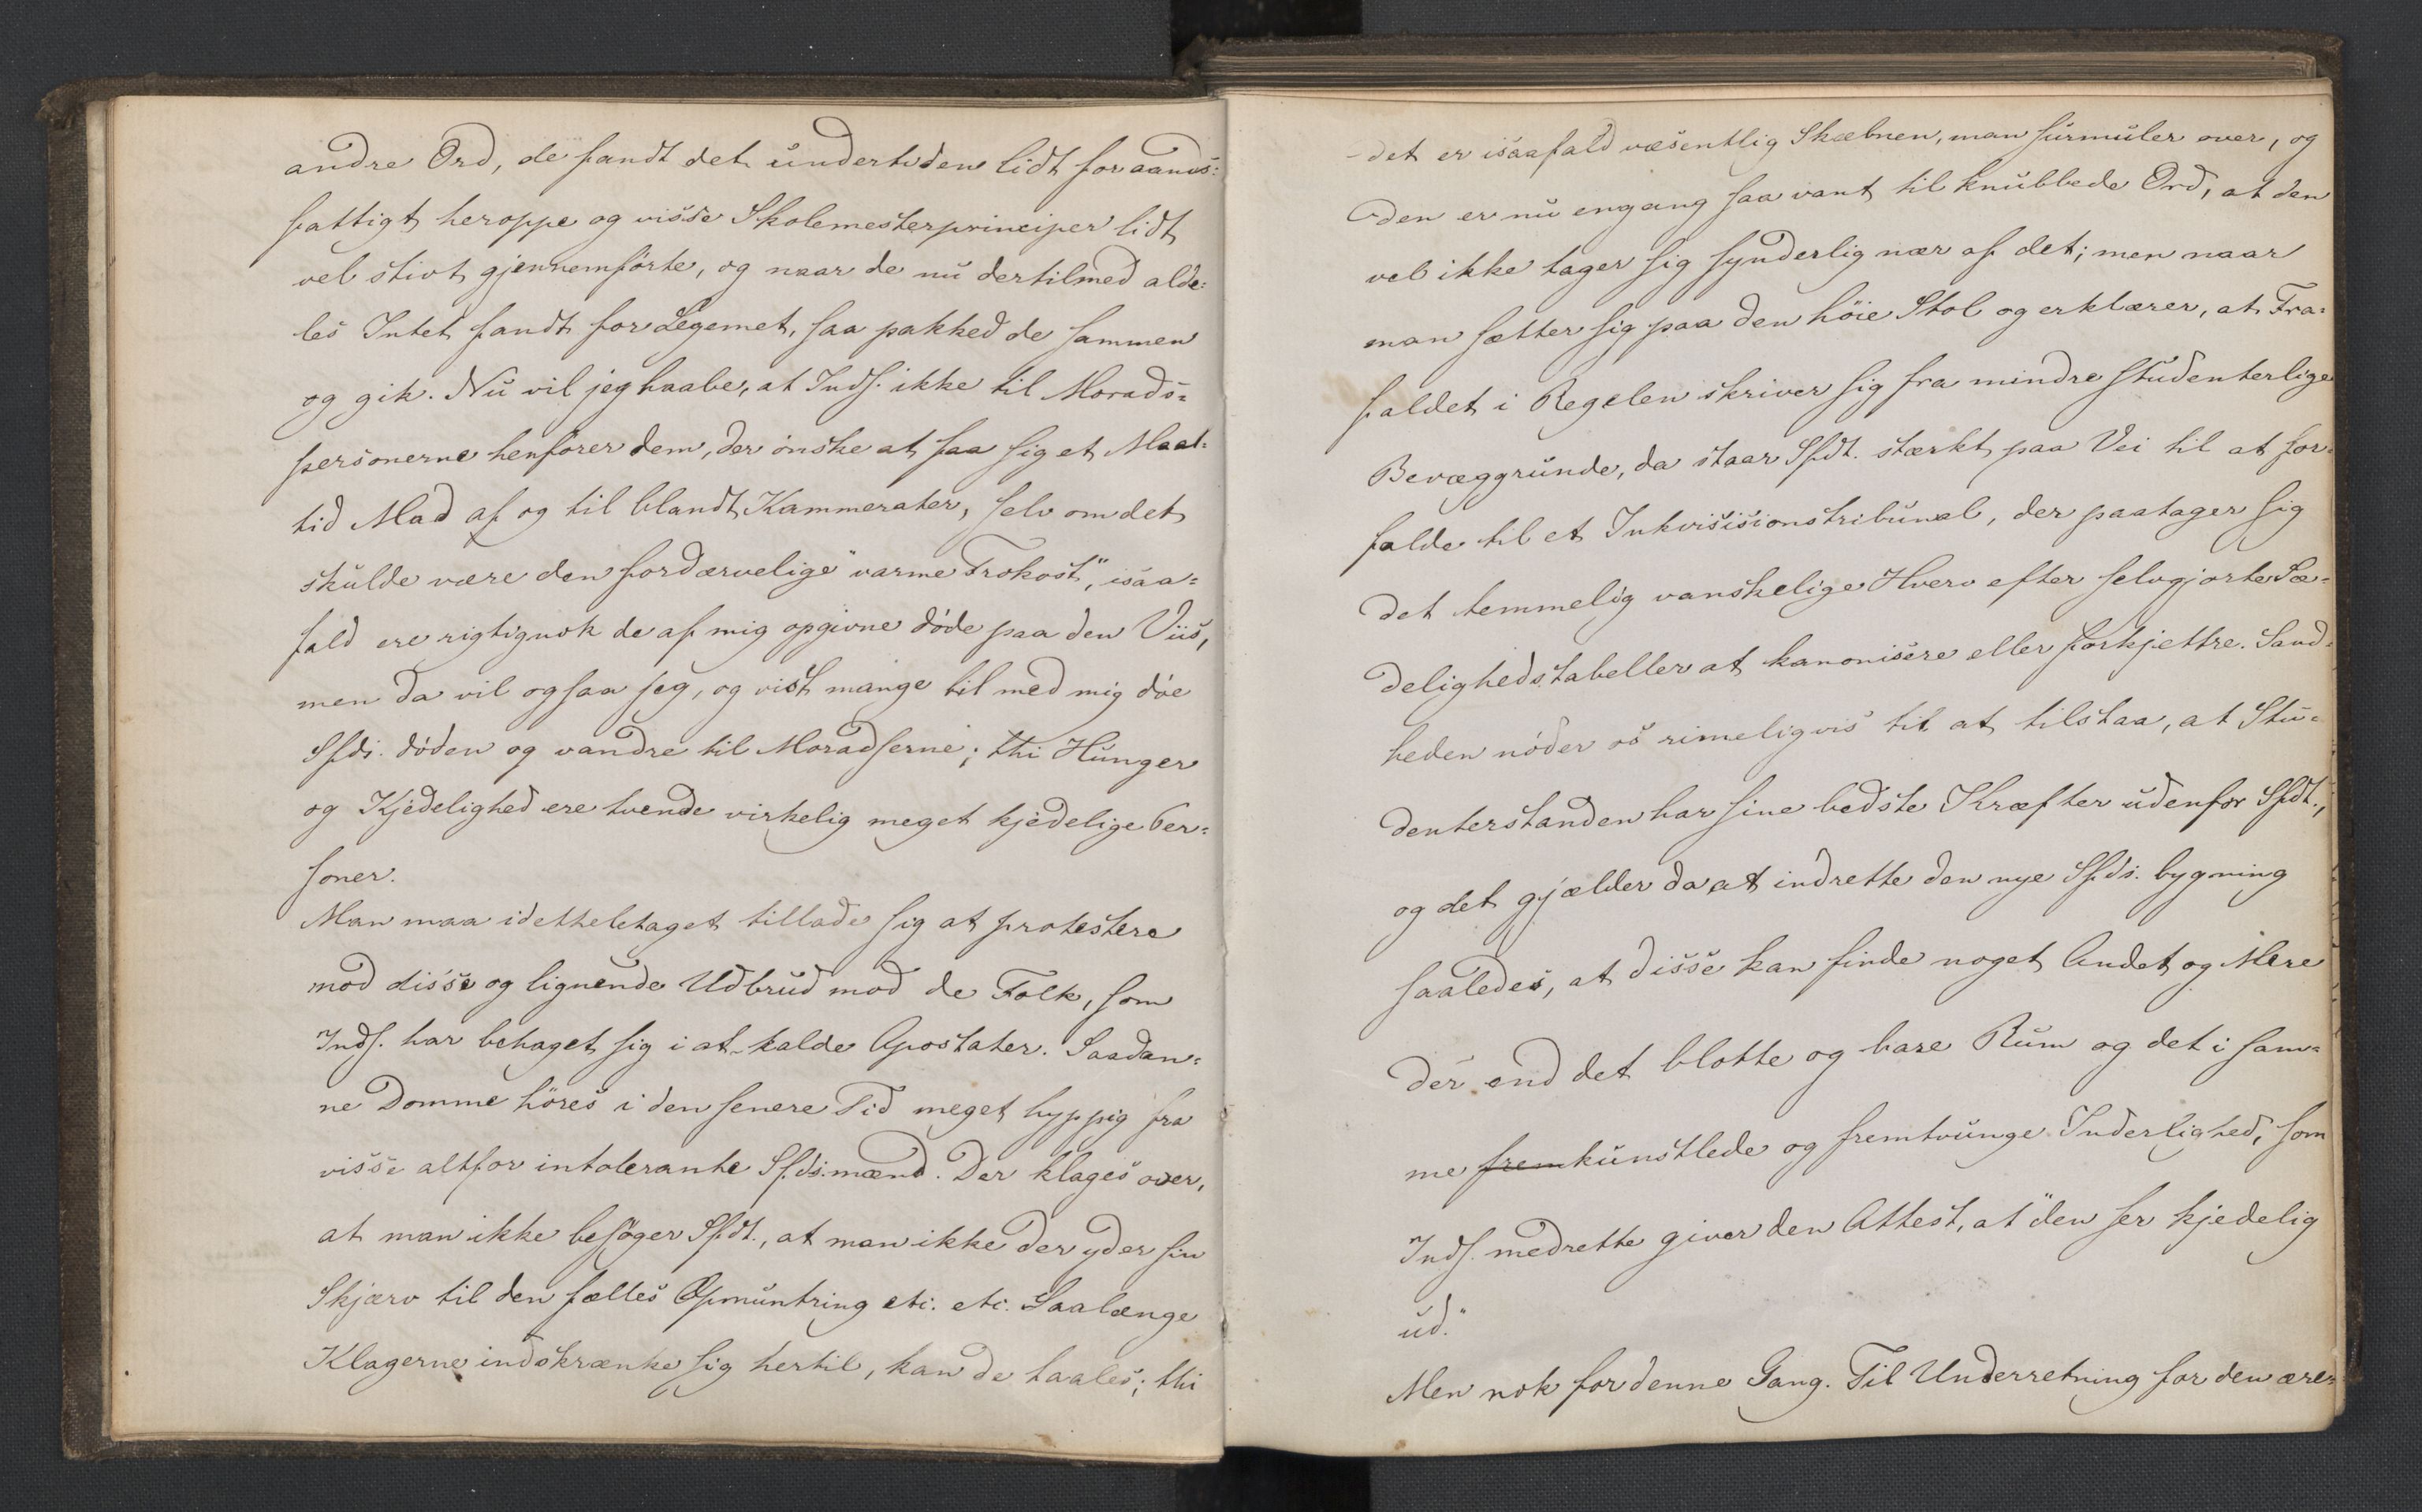 andre Ord, de fandt det undertiden lidt for aands=
fattigt heroppe og visse Skolemesterprinciper lidt
vel stivt gjennemførte, og naar de nu dertilmed alde=
les Intet fandt for Legemet, saa pakked de sammen
og gik. Nu vil jeg haabe, at Inds. ikke til Morads=
personerne henfører dem, der ønske at faa sig et Maal=
tid Mad af og til blandt Kammerater, selv om det
skulde være den fordærvelige "varme Frokost", isaa=
fald ere rigtignok de af mig opgivne døde paa den Viis,
men da vil ogsaa jeg, og vist mange til med mig døe
Sfds. døden og vandre til Moradserne; thi Hunger
og Kjedelighed ere tvende virkelig meget kjedelige Per=
soner.
Man maa idetheletaget tillade sig at protestere
mod disse og lignende Udbrud mod de Folk, som
Inds. har behaget sig i at kalde Apostater. Saadan=
ne Domme høres i den senere Tid meget hyppig fra
visse altfor intolerante Sfds.mænd. Der klages over,
at man ikke besøger Sfdt., at man ikke der yder sin
Skjærv til den fælles Opmuntring etc. etc. Saalænge
Klagerne indskrænke sig hertil, kan de taales; thi
det er isaafald væsentlig Skæbnen, man surmuler over, og
den er nu engang saa vant til knubbede Ord, at den
vel ikke tager sig synderlig nær af det; men naar
man sætter sig paa den høie Stol og erklærer, at Fra=
faldet i Regelen skriver sig fra mindre studenterlige
Bevæggrunde, da staar Sfdt. stærkt paa Vei til at for=
falde til et Inkvisisionstribunal, der paatager sig
det temmelig vanskelige Hverv efter selvgjorte Sæ=
delighedstabeller at kanonisere eller forkjettre. Sand=
heden nøder os rimeligvis til at tilstaa, at Stu=
denterstanden har sine bedste Kræfter udenfor Sfdt.,
og det gjælder da at indrette den nye Sfds. bygning
saaledes, at disse kan finde noget Andet og Mere
der end det blotte og bare Rum og det i sam=
me fremkunstlede og fremtvungne Inderlighed, som
Inds. medrette giver den Attest, at "den ser kjedelig
ud."
Men nok for denne Gang. Til Underretning for den ære=